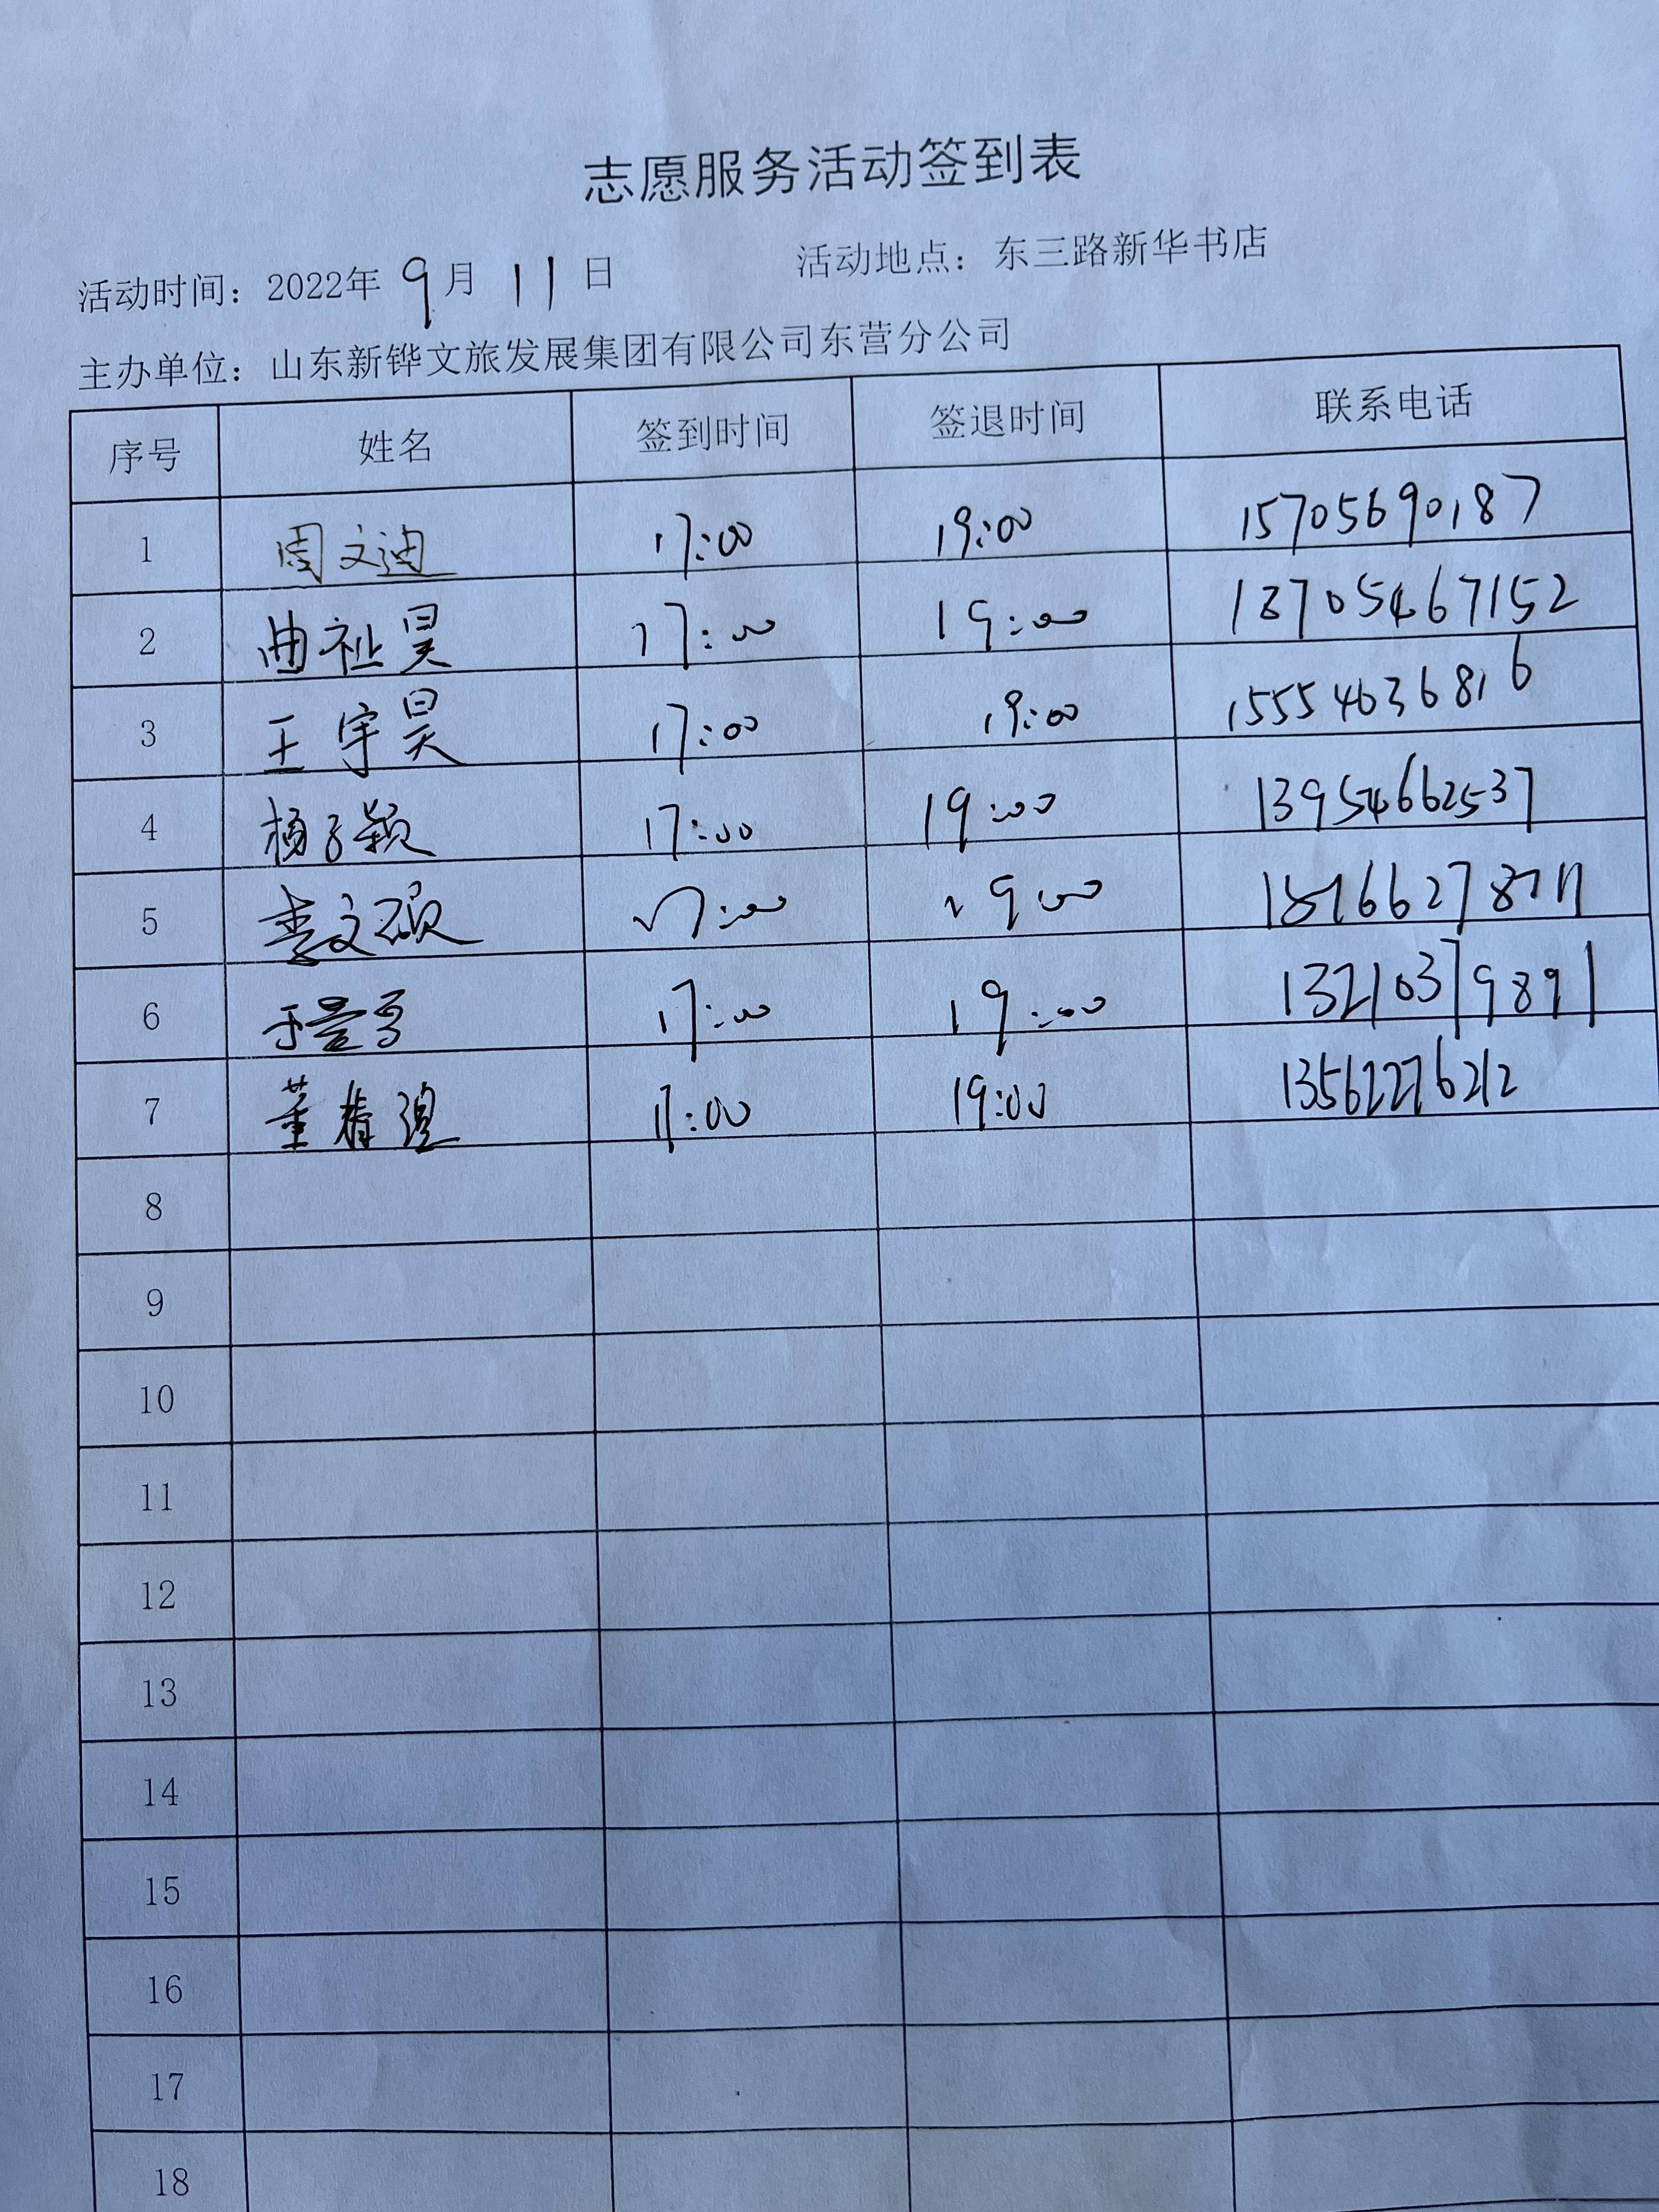 志愿服务活动签到表
活动时间：2022年 9 月 11 日 活动地点：东三路新华书店
主办单位：山东新铧文旅发展集团有限公司东营分公司
序号 姓名 签到时间 签退时间 联系电话
1 周文迪 17:00 19:00 15705690187
2 曲祉昊 17:00 19:00 18705467152
3 王宇昊 17:00 19:00 15554636816
4 杨子颖 17:00 19:00 13954662537
5 李文硕 17:00 19:00
6 17:00 19:00 13210379891
7 董 17:00 19:00 13562276212
8
9
10
11
12
13
14
15
16
17
18